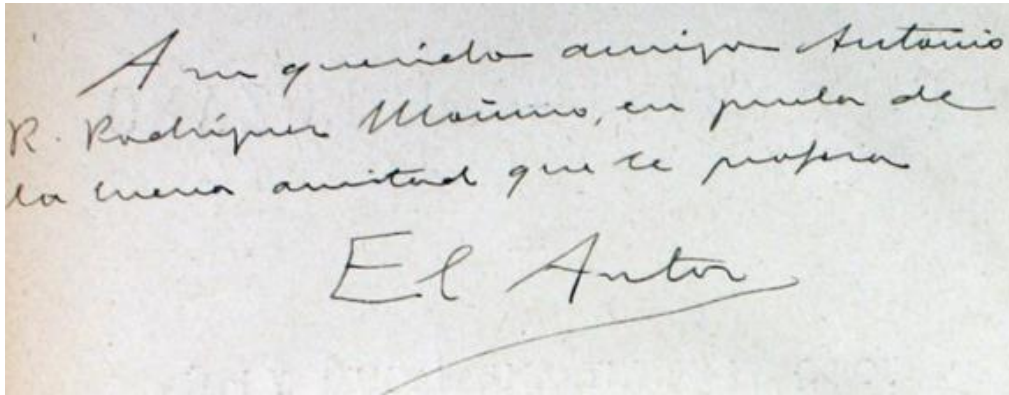 A mi querido amigo Antonio
R. Rodríguez Moñino, en prueba de
la buena amistad que te profesa
El Autor